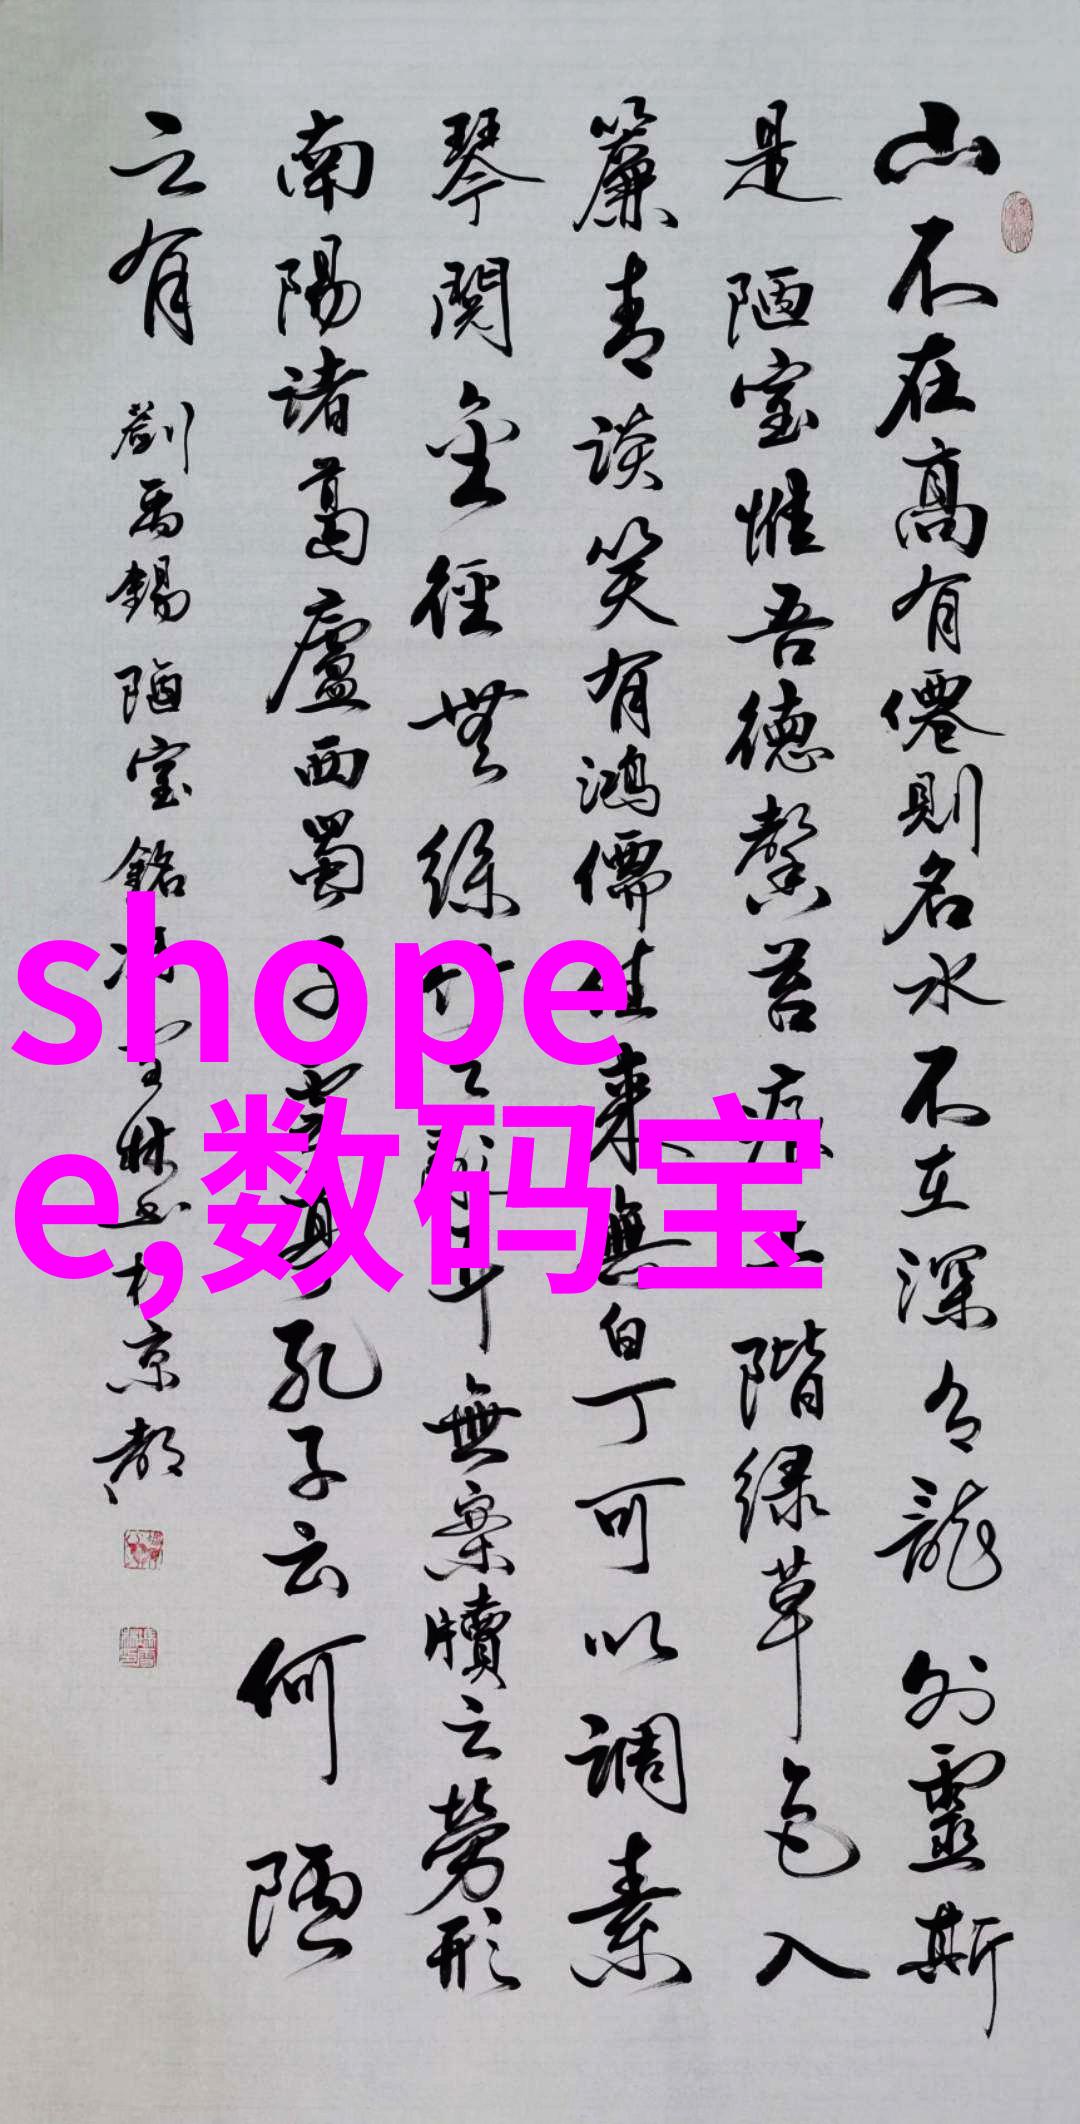 山不在高有僊則名水不在深有龍則靈斯
是陋室惟吾德馨苔痕上階緑草色入
簾青談笑有鴻儒往来無白丁可以調素
琴閲金經無絲竹之亂耳無案牘之勞形
南陽諸葛廬西蜀子雲亭孔子云何陋
之有 劉禹錫 陋室銘 林书於京都
shope
e,数码宝